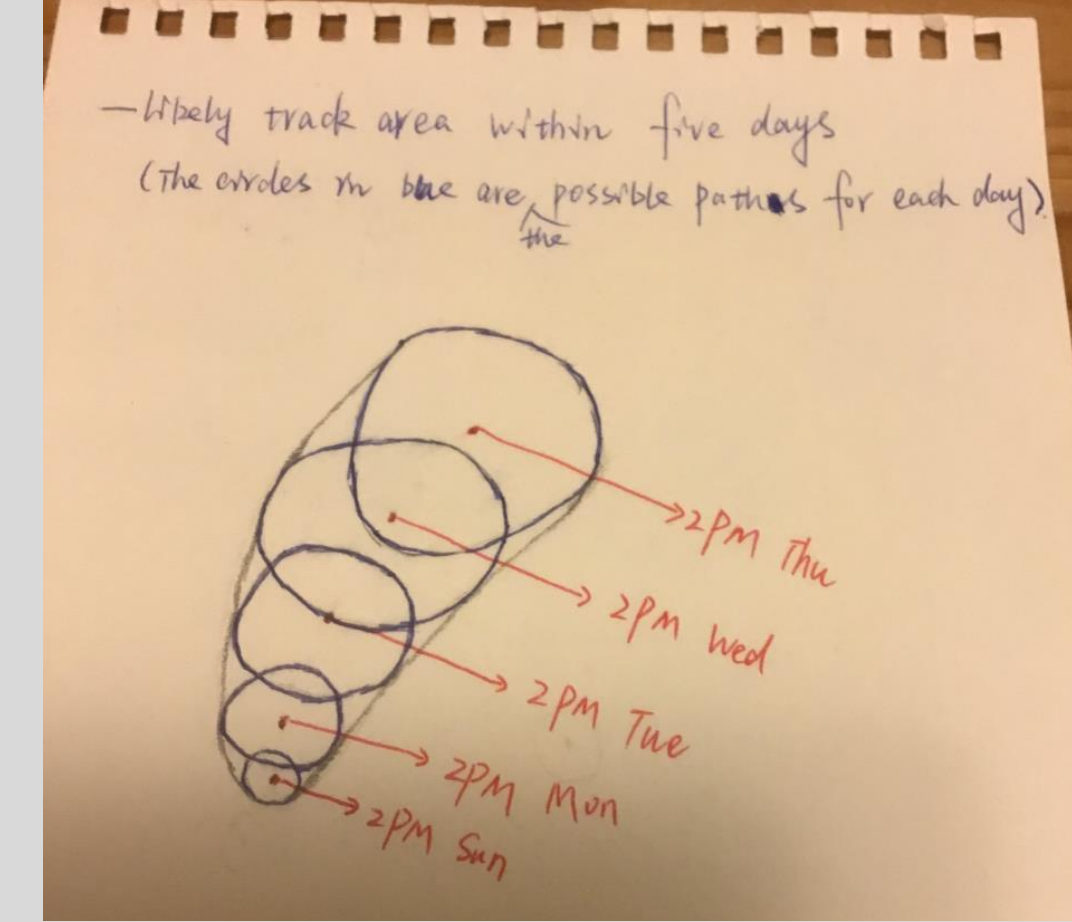 — Likely track area within five days
(The circles in blue are the possible paths for each day)
2PM Thu
2PM Wed
2PM Tue
2PM Mon
2PM Sun